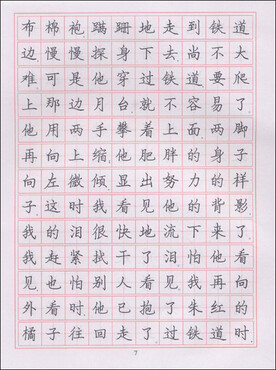 布棉袍蹒跚地走到铁道
边慢慢探身下去尚不大
难可是他穿过铁道要爬
上那边月台就不容易了
他用两手攀着上面两脚
再向上缩他肥胖的身子
向左微倾显出努力的样
子这时我看见他的背影
我的泪很快地流下来了
我赶紧拭干了泪怕他看
见也怕别人看见我再向
外看时他已抱了朱红的
橘子往回走了过铁道时
7